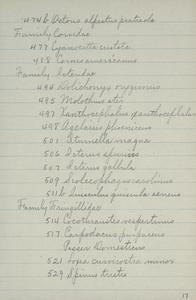 474b Otocoris alpestris praticola
Family Corvidae
477 Cyanocitta cristata
488 Corvus americanus
Family Icteridae
494 Dolichonyx oryzivorus
495 Molothrus ater
497 Xanthocephalus xanthocephalus
498 Agelaius phoeniceus
501 Sturnella magna
506 Icterus spurius
507 Icterus galbula
509 Scolecophagus carolinus
511b Quiscalus quiscula aeneus
Family Fringillidae
514 Cocothraustes vespertinus
517 Carpodacus purpureus
Passer Domesticus
521 Loxia curvirostra minor
529 Spinus tristis
17